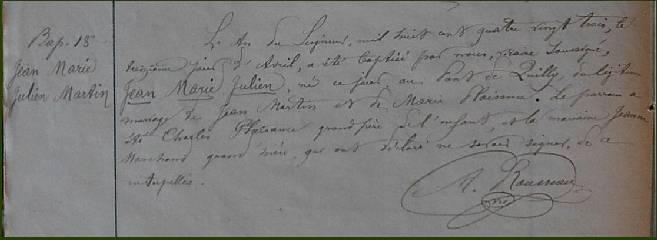 Bap. 18
Jean Marie
Julien Martin
L'an du Seigneur, mil huit cent quatre vingt trois, le
treizième jour d'Avril, a été baptisé par nous, vicaire soussigné,
Jean Marie Julien, né ce jour au Pont de Quilly, du légitime
mariage de Jean Martin et de Marie Plaisance. Le parrain a
été Charles Plaisance grand'père de l'enfant, et la marraine Jeanne
Marchand grand'mère, qui ont déclaré ne savoir signer, de ce
interpellés.
A. Rousseau